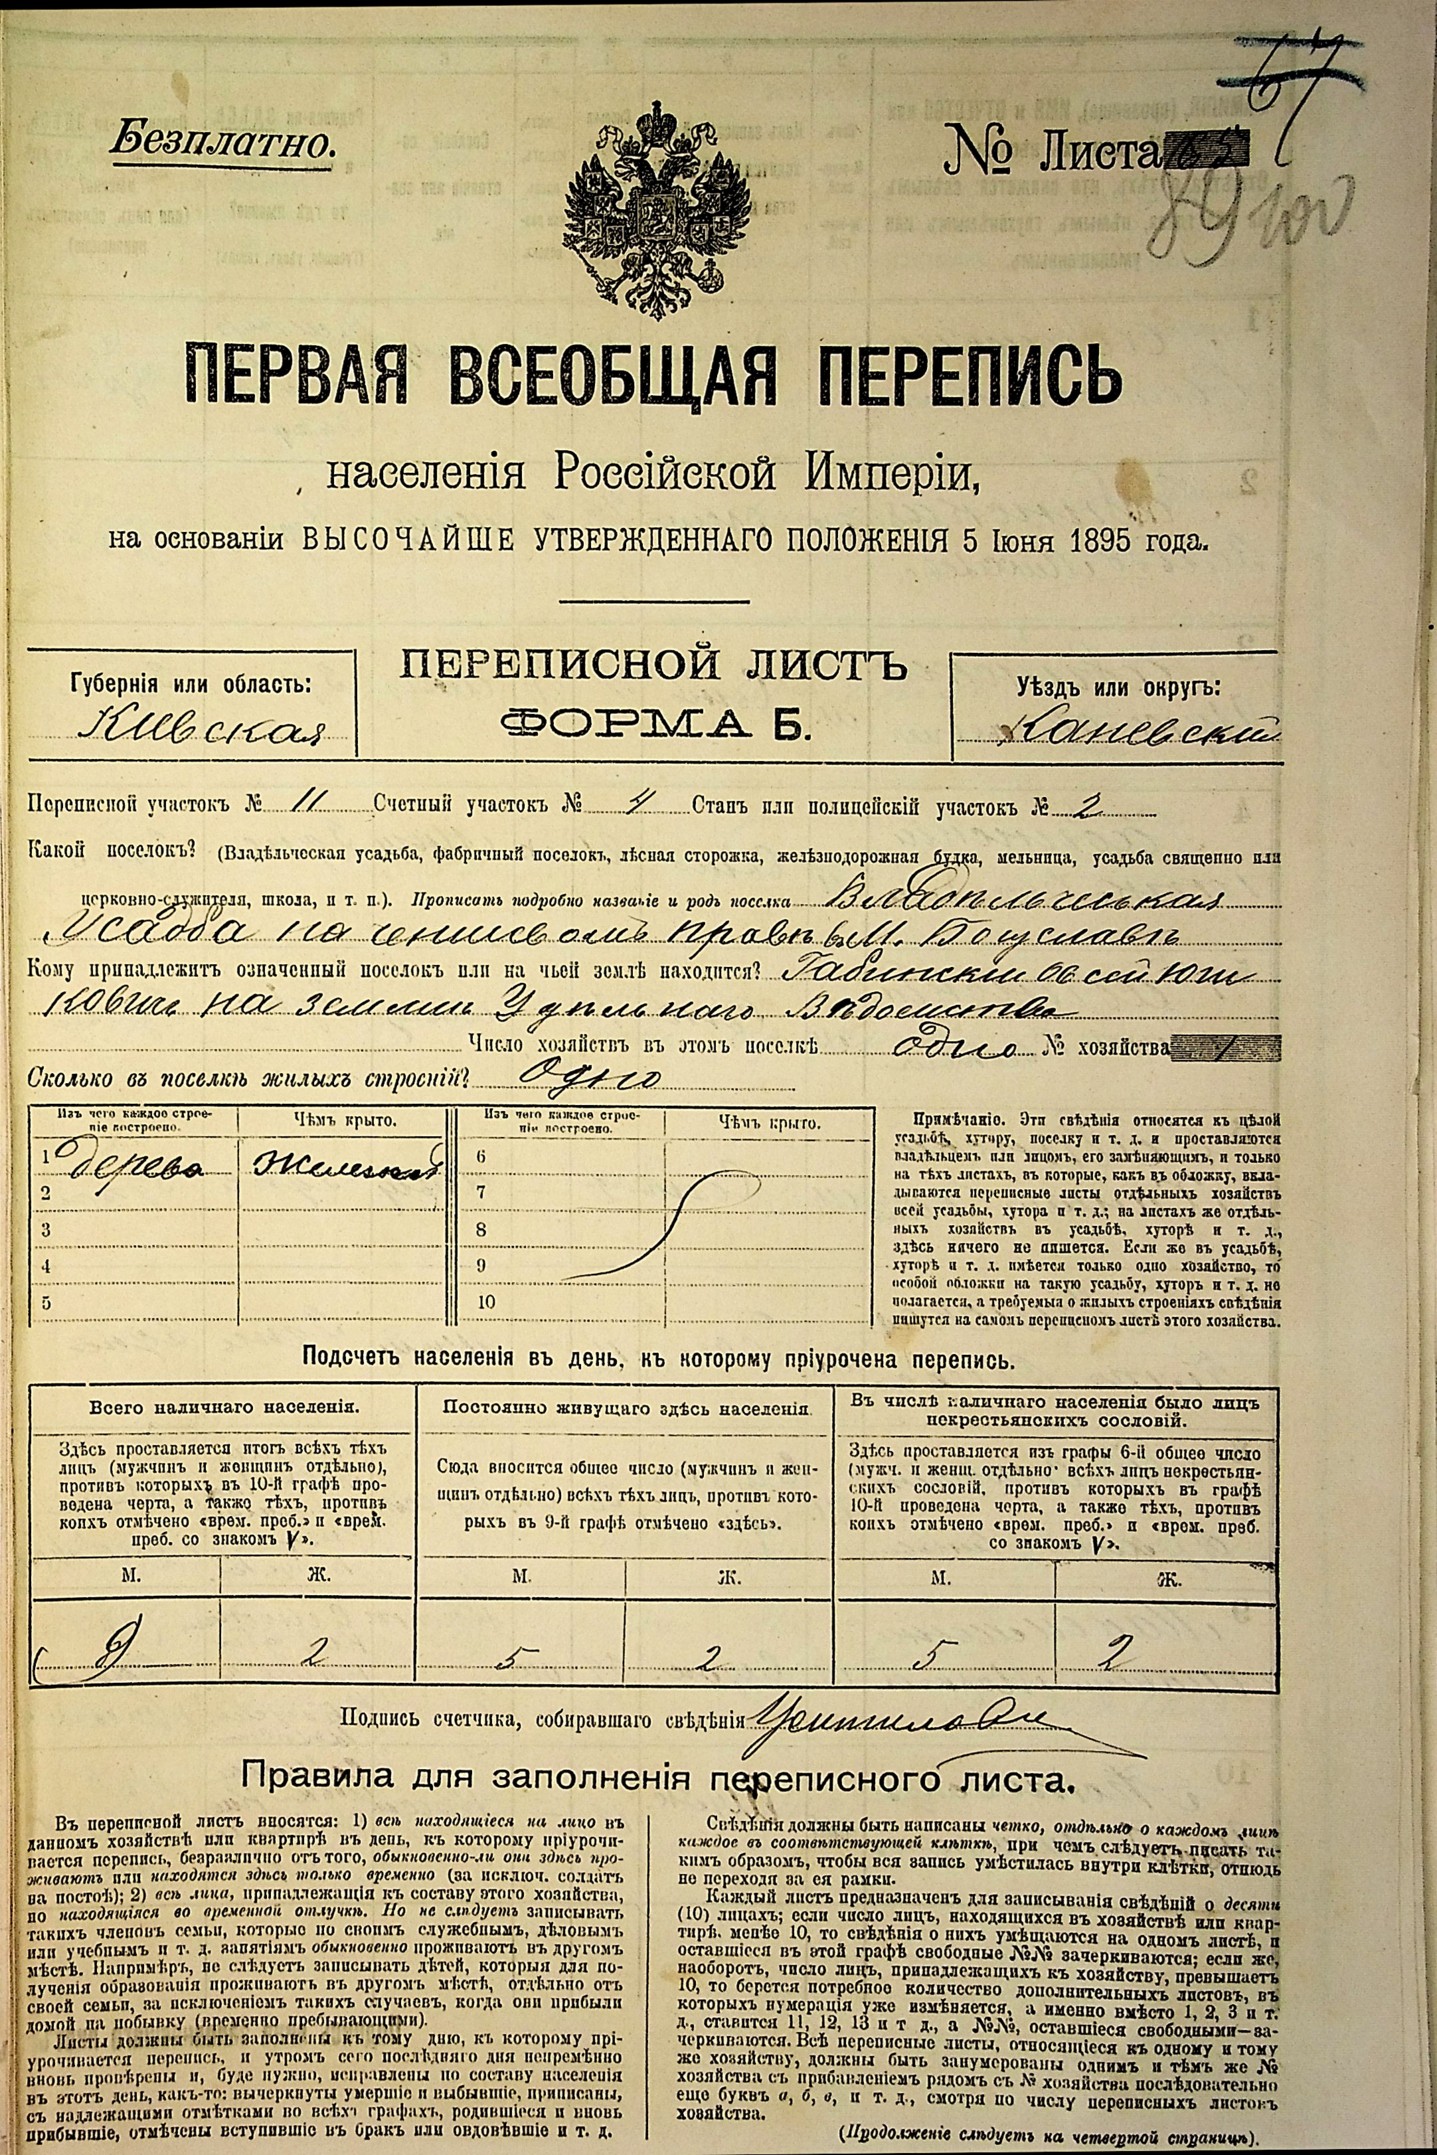 67
Безплатно.
№ Листа
89 100
ПЕРВАЯ ВСЕОБЩАЯ ПЕРЕПИСЬ
населенія Россійской Имперіи,
на основаніи ВЫСОЧАЙШЕ УТВЕРЖДЕННАГО ПОЛОЖЕНІЯ 5 Іюня 1895 года.
Губернія или область:
Киевская
ПЕРЕПИСНОЙ ЛИСТЪ
ФОРМА Б.
Уѣздъ или округъ:
Каневский
Переписной участокъ № 11 Счетный участокъ № 4 Станъ или полицейскій участокъ № 2
Какой поселокъ? (Владѣльческая усадьба, фабричный поселокъ, лѣсная сторожка, желѣзнодорожная будка, мельница, усадьба священно или
церковно-служителя, школа, и т. п.). Прописать подробно названіе и родъ поселка Владѣльческая
Усадба на чиншевомъ правѣ в М. Богуславѣ
Кому принадлежитъ означенный поселокъ или на чьей землѣ находится?
на земли Удѣльнаго Вѣдомства
Число хозяйствъ в этомъ поселкѣ одно № хозяйства 1
Сколько въ поселкѣ жилыхъ строеній? Одно
Изъ чего каждое строе-
ніе построено.
Чѣмъ крыто.
Изъ чего каждое строе-
ніи построено.
Чѣмъ крыто.
1 дерева
2
3
4
5
6
7
8
9
10
Примѣчаніе. Эти свѣдѣнія относятся къ цѣлой
усадьбѣ, хутору, поселку и т. д. и проставляются
владѣльцемъ или лицомъ, его замѣняющимъ, и только
на тѣхъ листахъ, въ которые, какъ въ обложку, вкла-
дываются переписные листы отдѣльныхъ хозяйствъ
всей усадьбы, хутора и т. д.; на листахъ же отдѣль-
ныхъ хозяйствъ въ усадьбѣ, хуторѣ и т. д.,
здѣсь ничего не пишется. Если же въ усадьбѣ,
хуторѣ и т. д. имѣется только одно хозяйство, то
особой обложки на такую усадьбу, хуторъ и т. д. не
полагается, а требуемыя о жилыхъ строеніяхъ свѣдѣнія
пишутся на самомъ переписномъ листѣ этого хозяйства.
Подсчетъ населенія въ день, къ которому пріурочена перепись.
Всего наличнаго населенія.
Здѣсь проставляется итогъ всѣхъ тѣхъ
лицъ (мужчинъ и женщинъ отдѣльно),
противъ которыхъ въ 10-й графѣ про-
ведена черта, а также тѣхъ, противъ
коихъ отмѣчено «врем. преб.» и «врем.
преб. со знакомъ V».
М. Ж.
2
Постоянно живущаго здѣсь населенія
Сюда вносится общее число (мужчинъ и жен-
щинъ отдѣльно) всѣхъ тѣхъ лицъ, противъ кото-
рыхъ въ 9-й графѣ отмѣчено «здѣсь».
М. Ж.
5 2
Въ числѣ наличнаго населенія было лицъ
некрестьянскихъ сословій.
Здѣсь проставляется изъ графы 6-й общее число
(мужч. и женщ. отдѣльно) всѣхъ лицъ некрестьян-
скихъ сословій, противъ которыхъ въ графѣ
10-й проведена черта, а также тѣхъ, противъ
коихъ отмѣчено «врем. преб.» и «врем. преб.
со знакомъ V».
М. Ж.
5 2
Подпись счетчика, собиравшаго свѣдѣнія
Правила для заполненія переписного листа.
Въ переписной листъ вносятся: 1) всѣ находящіеся на лицо въ
данномъ хозяйствѣ или квартирѣ въ день, къ которому пріурочи-
вается перепись, безразлично отъ того, обыкновенно-ли они здѣсь про-
живаютъ или находятся здѣсь только временно (за исключ. солдатъ
на постоѣ); 2) всѣ лица, принадлежащія къ составу этого хозяйства,
но находящіяся во временной отлучкѣ. Но не слѣдуетъ записывать
такихъ членовъ семьи, которые по своимъ служебнымъ, дѣловымъ
или учебнымъ и т. д. занятіямъ обыкновенно проживаютъ въ другомъ
мѣстѣ. Напримѣръ, не слѣдуетъ записывать дѣтей, которыя для по-
лученія образованія проживаютъ въ другомъ мѣстѣ, отдѣльно отъ
своей семьи, за исключеніемъ такихъ случаевъ, когда они прибыли
домой на побывку (временно пребывающими).
Листы должны быть заполнены къ тому дню, къ которому прі-
урочивается перепись, и утромъ сего послѣдняго дня непремѣнно
вновь провѣрены и, буде нужно, исправлены по составу населенія
въ этотъ день, какъ-то: вычеркнуты умершіе и выбывшіе, приписаны,
съ надлежащими отмѣтками во всѣхъ графахъ, родившіеся и вновь
прибывшіе, отмѣчены вступившіе въ бракъ или овдовѣвшіе и т. д.
Свѣдѣнія должны быть написаны четко, отдѣльно о каждомъ лицѣ
каждое въ соотвѣтствующей клѣткѣ, при чемъ слѣдуетъ писать та-
кимъ образомъ, чтобы вся запись умѣстилась внутри клѣтки, отнюдь
не переходя за ея рамки.
Каждый листъ предназначенъ для записыванія свѣдѣній о десяти
(10) лицахъ; если число лицъ, находящихся въ хозяйствѣ или квар-
тирѣ, менѣе 10, то свѣдѣнія о нихъ умѣщаются на одномъ листѣ, и
оставшіеся въ этой графѣ свободные №№ зачеркиваются; если же,
наоборотъ, число лицъ, принадлежащихъ къ хозяйству, превышаетъ
10, то берется потребное количество дополнительныхъ листовъ, въ
которыхъ нумерація уже измѣняется, а именно вмѣсто 1, 2, 3 и т.
д., ставится 11, 12, 13 и т д., а №№, оставшіеся свободными—за-
черкиваются. Всѣ переписные листы, относящіеся къ одному и тому
же хозяйству, должны быть занумерованы однимъ и тѣмъ же №
хозяйства съ прибавленіемъ рядомъ съ № хозяйства послѣдовательно
еще буквъ а, б, в, и т. д., смотря по числу переписныхъ листовъ
хозяйства.
(Продолженіе слѣдуетъ на четвертой страницѣ).